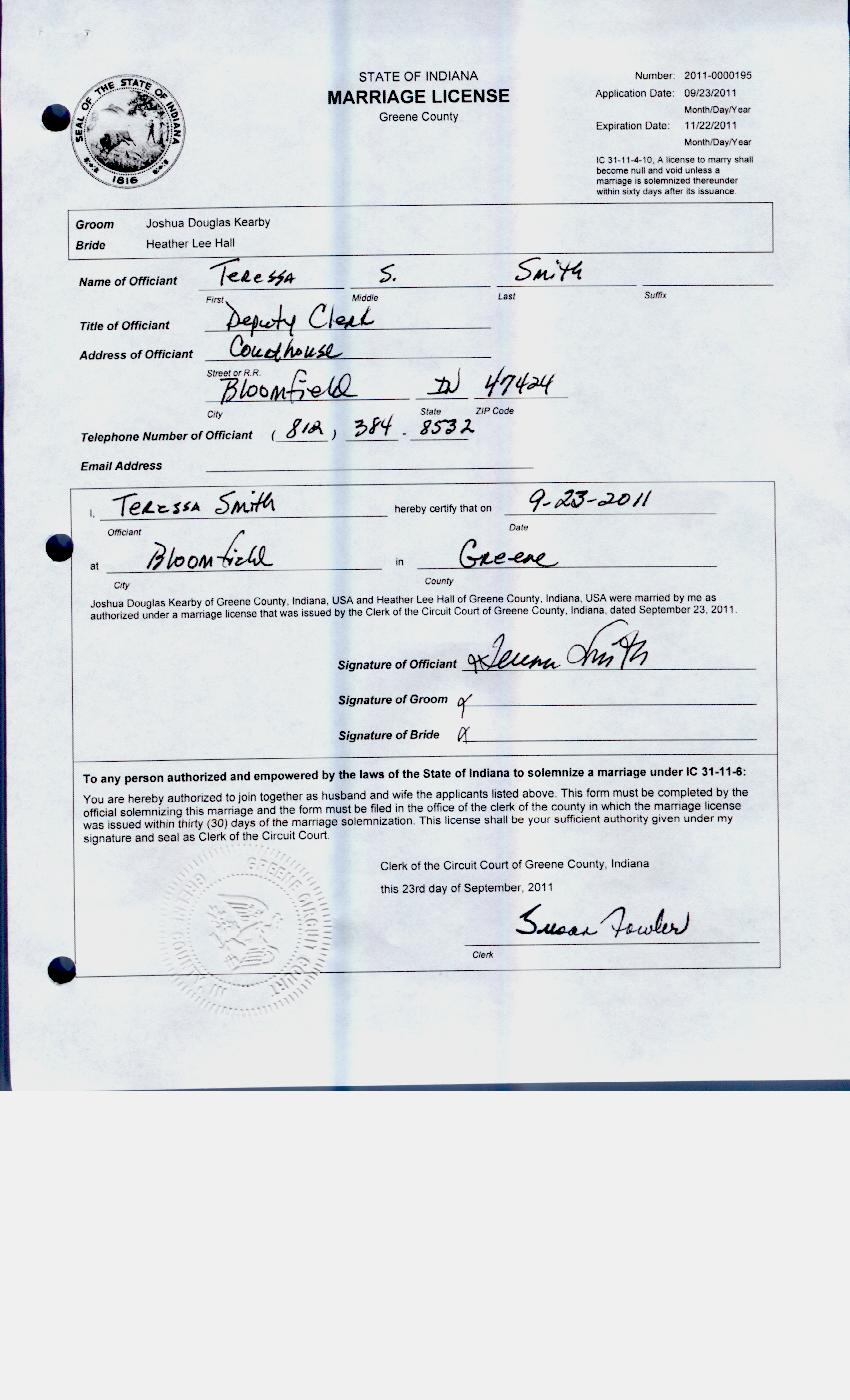 SEAL OF THE STATE OF INDIANA
1816
STATE OF INDIANA
MARRIAGE LICENSE
Greene County
Number: 2011-0000195
Application Date: 09/23/2011
Month/Day/Year
Expiration Date: 11/22/2011
Month/Day/Year
IC 31-11-4-10, A license to marry shall
become null and void unless a
marriage is solemnized thereunder
within sixty days after its issuance.
Groom Joshua Douglas Kearby
Bride Heather Lee Hall
Name of Officiant Teressa S. Smith
First Middle Last Suffix
Title of Officiant Deputy Clerk
Address of Officiant Courthouse
Street or R.R.
Bloomfield IN 47424
City State ZIP Code
Telephone Number of Officiant (812) 384-8532
Email Address
I, Teressa Smith hereby certify that on 9-23-2011
Officiant Date
at Bloomfield in Greene
City County
Joshua Douglas Kearby of Greene County, Indiana, USA and Heather Lee Hall of Greene County, Indiana, USA were married by me as
authorized under a marriage license that was issued by the Clerk of the Circuit Court of Greene County, Indiana, dated September 23, 2011.
Signature of Officiant x Teressa Smith
Signature of Groom x
Signature of Bride x
To any person authorized and empowered by the laws of the State of Indiana to solemnize a marriage under IC 31-11-6:
You are hereby authorized to join together as husband and wife the applicants listed above. This form must be completed by the
official solemnizing this marriage and the form must be filed in the office of the clerk of the county in which the marriage license
was issued within thirty (30) days of the marriage solemnization. This license shall be your sufficient authority given under my
signature and seal as Clerk of the Circuit Court.
Clerk of the Circuit Court of Greene County, Indiana
this 23rd day of September, 2011
Susan Fowler
Clerk
GREENE CIRCUIT COURT